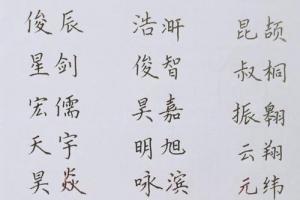 俊辰 浩湃 昆颉
星剑 俊智 叔桐
宏儒 昊嘉 振翱
天宇 明旭 云翔
昊焱 咏滨 元纬